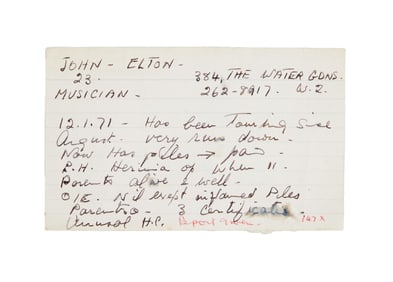 JOHN - ELTON -
23. 384, THE WATER GDNS.
MUSICIAN - 262-8917. W.2.
12.1.71 - Has been Touring since
August. very run down.
Now Has piles → pain
P.H. Hernia op when 11.
Parents alive & well.
O/E. Nil except inflamed Piles
3 certificates.
Annual H.C. Report given. 747A